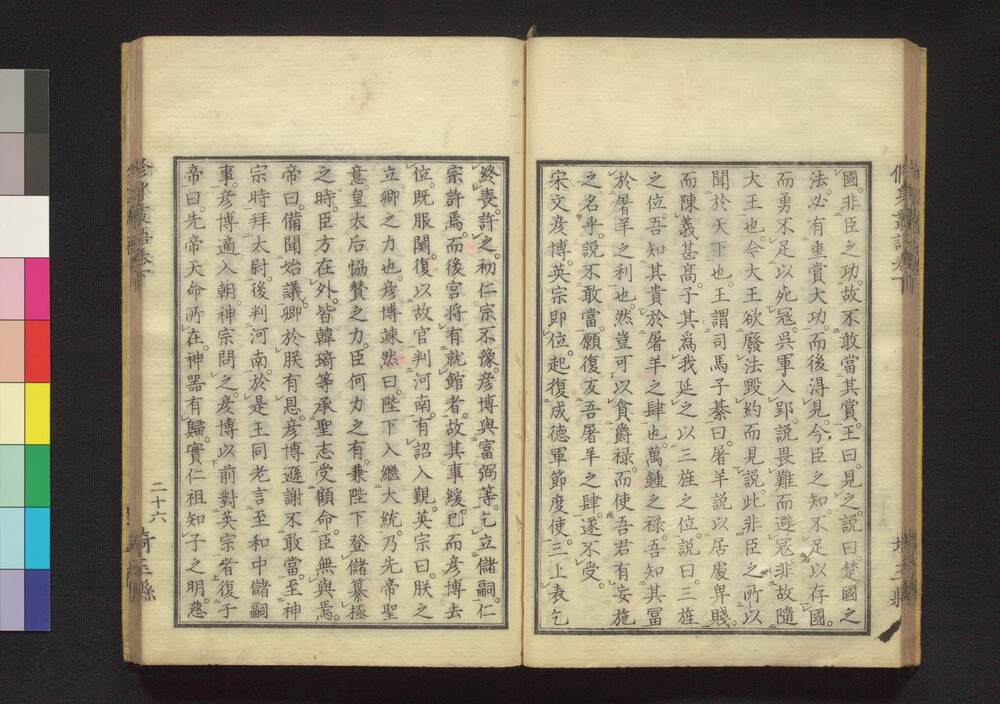 國。非臣之功。故不敢當其賞。王曰。見之。説曰。楚國之
法。必有重賞大功而後得見。今臣之知。不足以存國。
而勇不足以死寇。吳軍入郢。説畏難而避寇。非故隨
大王也。今大王欲廢法毀約而見説。此非臣之所以
聞於天下也。王謂司馬子綦曰。屠羊説以居處卑賤。
而陳義甚高。子其爲我延之以三旌之位。説曰。三旌
之位。吾知其貴於屠羊之肆也。萬鍾之祿。吾知其冨
於屠羊之利也。然豈可以貪爵祿。而使吾君有妄施
之名乎。説不敢當。願復反吾屠羊之肆。遂不受。
宋文彦博。英宗即位。起復成德軍節度使。三上表乞
終喪。許之。初仁宗不豫。彦博與富弼等。乞立儲嗣。仁
宗許焉。而後宮將有就館者。故其事緩。已而彦博去
位。既服闋。復以故官判河南。有詔入覲。英宗曰。朕之
立卿之力也。彦博竦然曰。陛下入繼大統。乃先帝聖
意。皇太后恊賛之力。臣何力之有。兼陛下登儲纂極
之時。臣方在外。皆韓琦等承聖志受顧命。臣無與焉。
帝曰。備聞始議。卿於朕有恩。彦博遜謝不敢當。至神
宗時拜太尉。後判河南。於是王同老言至和中儲嗣
事。彦博適入朝。神宗問之。彦博以前對英宗者復于
帝曰。先帝天命所在。神器有歸。實仁祖知子之明。慈
二十六